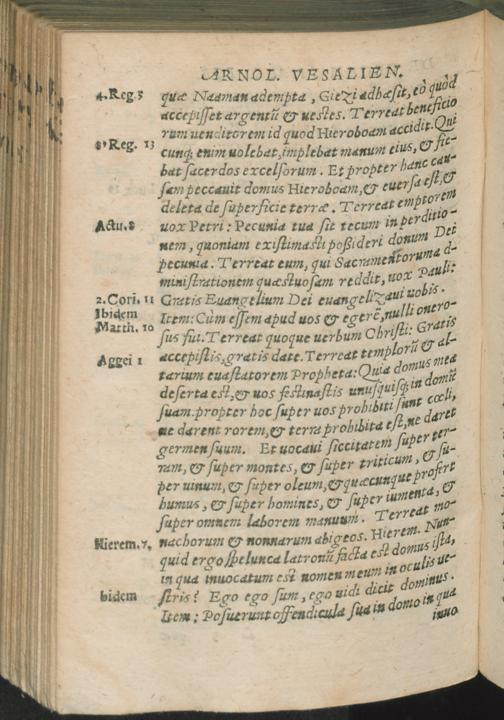 ARNOL. VESALIEN.
4.Reg.5 quæ Naaman adempta, Giezi adhæsit, eò quòd
accepisset argentũ & uestes. Terreat beneficio
rum uenditorem id quod Hieroboam accidit. Qui
8'Reg. 13 cunq; enim uolebat, implebat manum eius, & fie-
bat sacerdos excelsorum. Et propter hanc cau-
sam peccauit domus Hieroboam, & euersa est, &
deleta de superficie terræ. Terreat emptorem
Actu.8 uox Petri: Pecunia tua sit tecum in perditio-
nem, quoniam existimasti poßideri donum Dei
pecunia. Terreat eum, qui Sacramentorum a d-
ministrationem quæstuosam reddit, uox Pauli:
2. Cori. 11 Gratis Euangelium Dei euangelizaui uobis.
Ibidem Item: Cùm essem apud uos & egerẽ, nulli onero-
Matth. 10 sus fui. Terreat quoque uerbum Christi: Gratis
accepistis, gratis date. Terreat templorũ & al-
Aggei 1 tarium euastatorem Propheta: Quia domus mea
deserta est, & uos festinastis unusquisq; in domũ
suam. propter hoc super uos prohibiti sunt cœli,
ne darent rorem, & terra prohibita est, ne daret
germen suum. Et uocaui siccitatem super ter-
ram, & super montes, & super triticum, & su-
per uinum, & super oleum, & quæcunque profert
humus, & super homines, & super iumenta, &
super omnem laborem manuum. Terreat mo-
Hierem.7, nachorum & nonnarum abigeos. Hierem. Nun-
quid ergo spelunca latronũ facta est domus ista,
in qua inuocatum est nomen meum in oculis ue-
stris? Ego ego sum, ego uidi dicit dominus.
bidem Item: Posuerunt offendicula sua in domo in qua
inuo